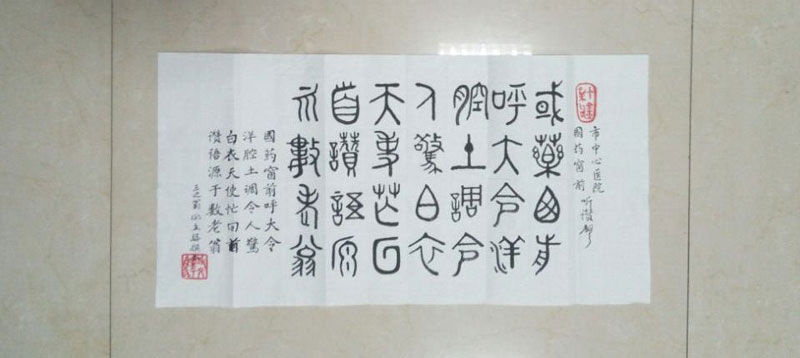 市中心医院
國药窗前 听讚
或藥囪前
呼大令洋
腔土調令
人驚白衣
天使芒回
首讚語源
于數老翁
國药窗前呼大令
洋腔土调令人驚
白衣天使忙回首
讚语源于数老翁